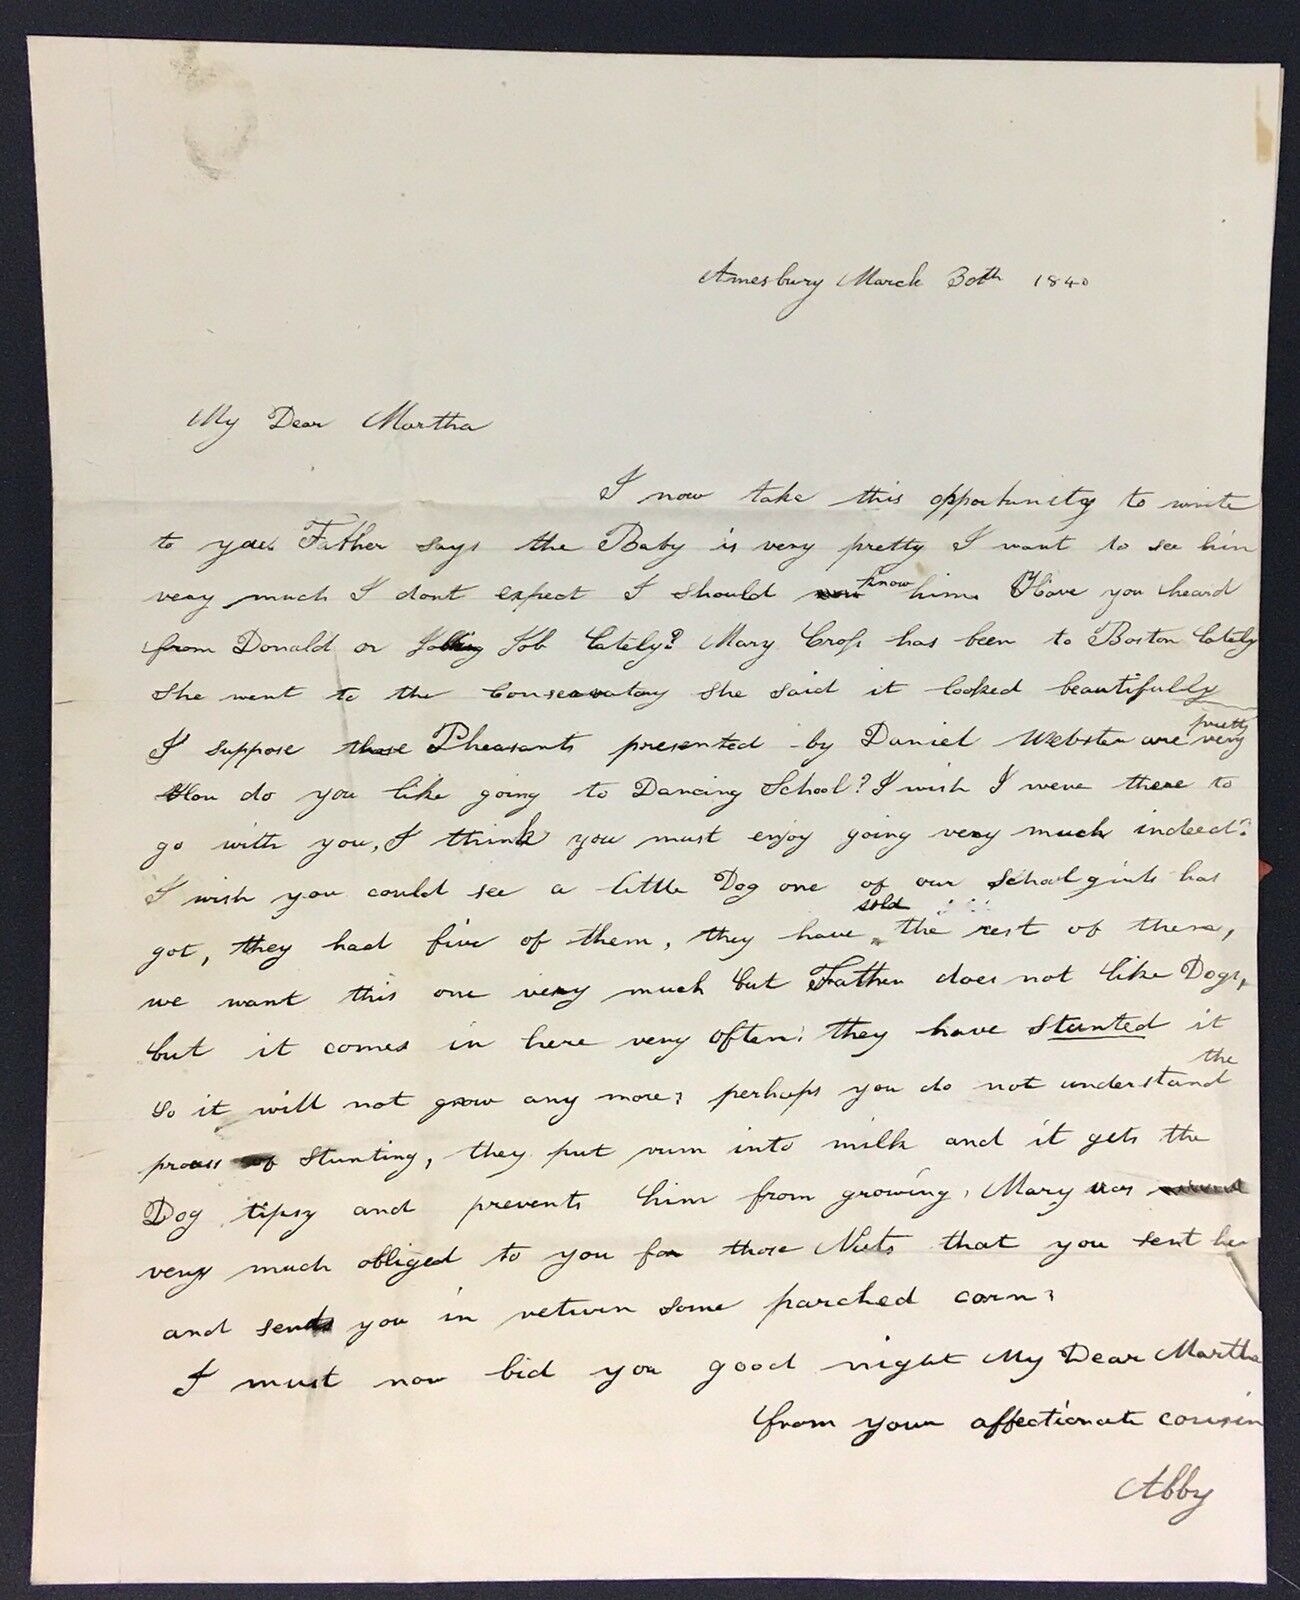 Amesbury March 30th 1840
My Dear Martha
I now take this opportunity to write
to you. Father says the Baby is very pretty I want to see him
very much I dont expect I should know him. Have you heard
from Donald or Job lately? Mary Cross has been to Boston lately
She went to the Conservatory She said it looked beautifully
I suppose those Pheasants presented by Daniel Webster are very pretty
How do you like going to Dancing School? I wish I were there to
go with you, I think you must enjoy going very much indeed?
I wish you could see a little Dog one of our School girls has
got, they had five of them, they have sold the rest of them,
we want this one very much but Father does not like Dogs,
but it comes in here very often; they have stunted it
So it will not grow any more; perhaps you do not understand the
process of Stunting, they put rum into milk and it gets the
Dog tipsy and prevents him from growing, Mary was
very much obliged to you for those Nuts that you sent her
and sends you in return some parched corn;
I must now bid you good night My Dear Martha
from your affectionate cousin
Abby